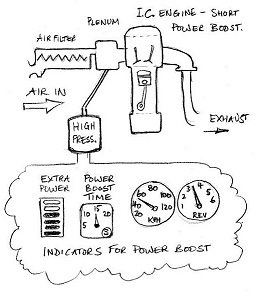 I.C. ENGINE - SHORT
POWER BOOST.
PLENUM
AIR FILTER
AIR IN
EXHAUST
HIGH
PRESS.
EXTRA
POWER
POWER
BOOST
TIME
5 10 15 20
S
20 40 60 80 100 120
KPH
1 2 3 4 5 6
REV
INDICATORS FOR POWER BOOST